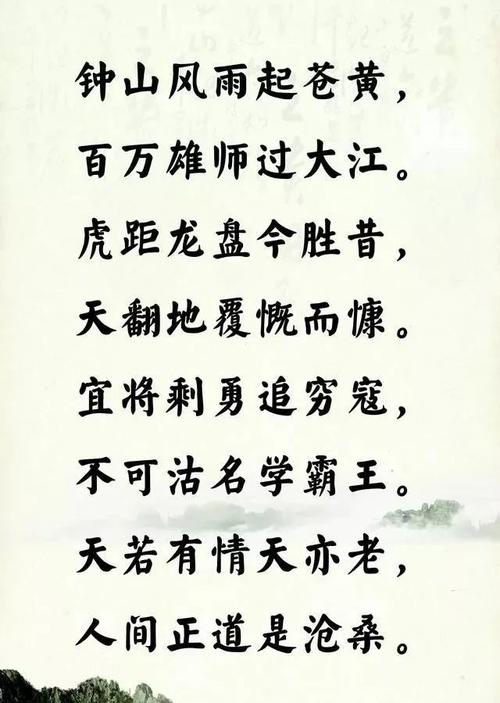 钟山风雨起苍黄，
百万雄师过大江。
虎距龙盘今胜昔，
天翻地覆慨而慷。
宜将剩勇追穷寇，
不可沽名学霸王。
天若有情天亦老，
人间正道是沧桑。